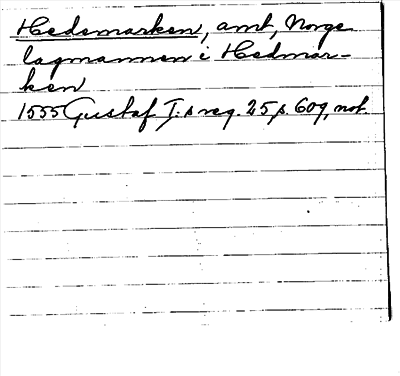 Hedemarken, amt, Norge
lagmannen i Hedmar-
ken
1555 Gustaf I:s reg. 25 s. 609, not.